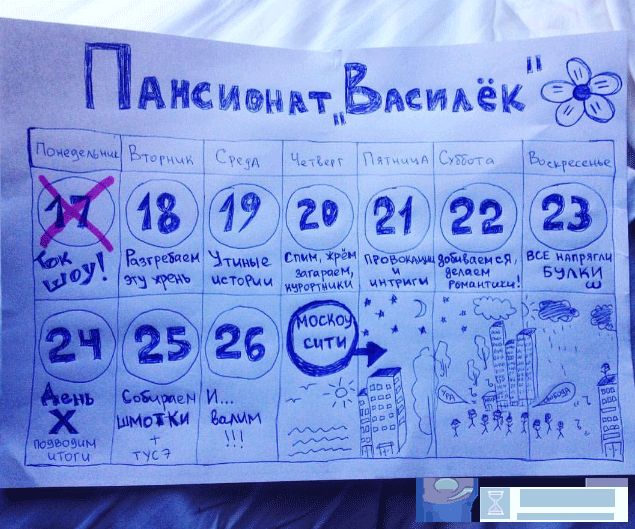 Пансионат „Василёк"
Понедельник Вторник Среда Четверг Пятница Суббота Воскресенье
17 18 19 20 21 22 23
Ток
шоу!
Разгребаем
эту хрень
Утиные
истории
Спим, жрём
загараем,
курортники
Провокации
и
интриги
добиваемся,
делаем
романтики!
Все напрягли
булки
24 25 26
Москоу
сити
День
X
подводим
итоги
Собираем
шмотки
+
тус?
И...
валим
!!!